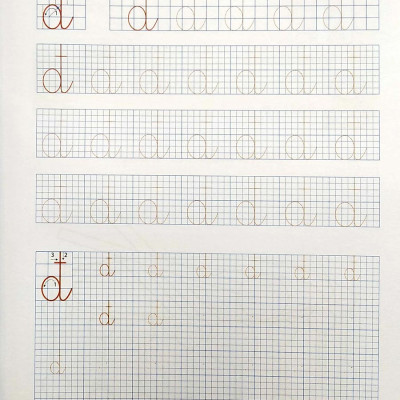 d d d d d d
đ đ đ đ đ đ đ
đ đ đ đ đ đ đ
đ đ đ đ đ đ đ
3 2
đ đ đ đ đ đ đ
1
đ đ
đ